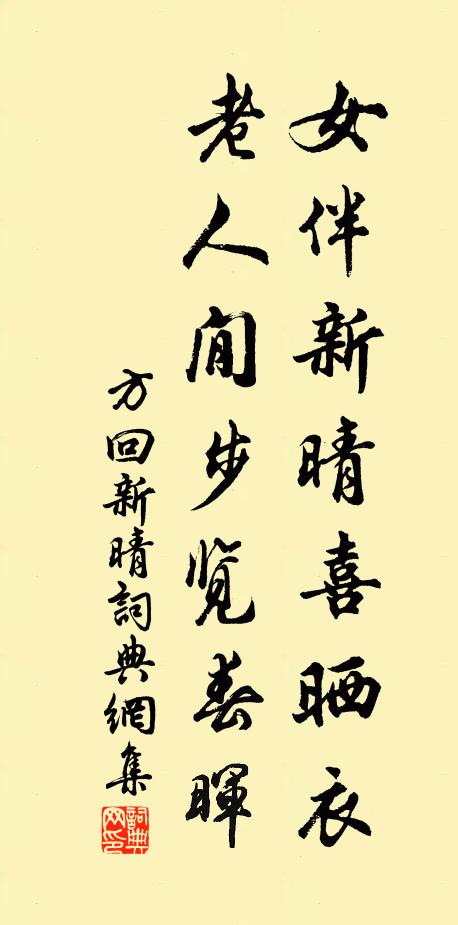 女伴新晴喜晒衣
老人閒步览春暉
方回新晴詞典網集
詞典网印